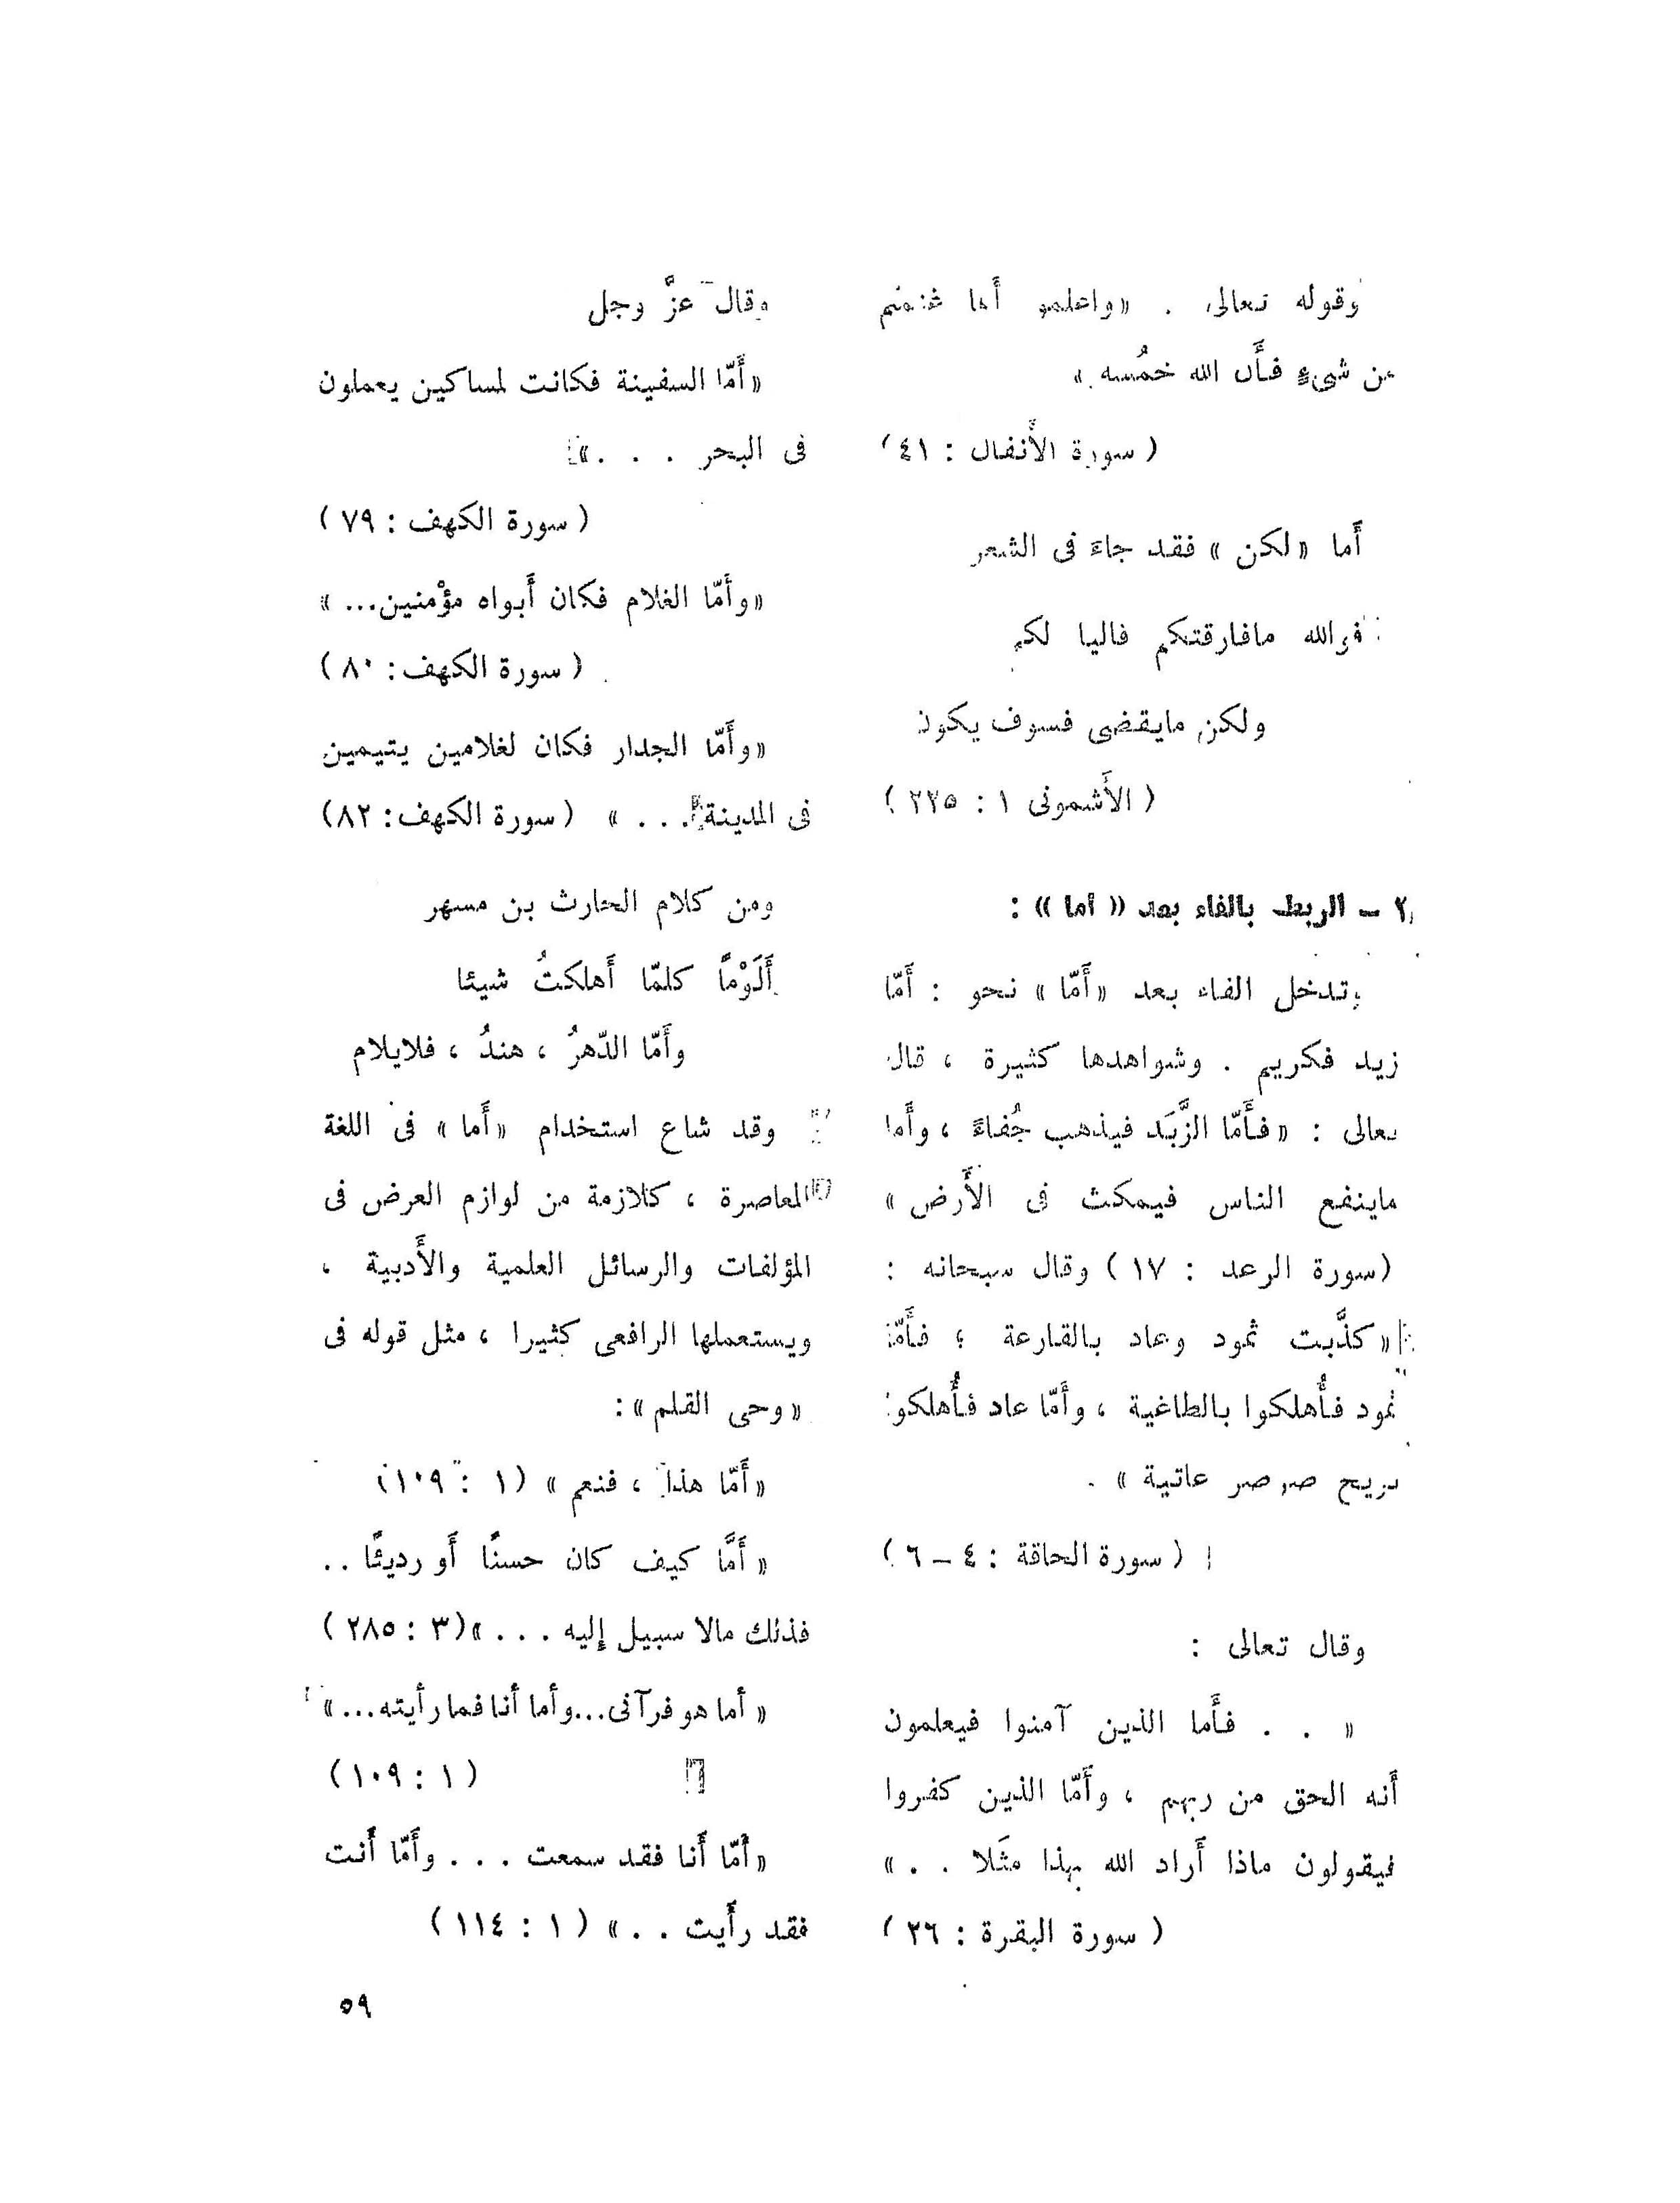 وقوله تعالى . «واعلموا أما غنمتم
من شىءٍ فأَن الله خمُسه »
( سورة الأَنفال : ٤١ )
أَما «لكن » فقد جاءَ فى الشعر
فوالله مافارقتكم قاليا لكم
ولكن مايقضى فسوف يكون
( الأَشمونى ١ : ٢٢٥ )
٢ – الربط بالفاء بعد « أما » :
وتدخل الفاء بعد «أَمّا » نحو : أَمّا
زيد فكريم . وشواهدها كثيرة ، قال
تعالى : «فأَمّا الزَّبَد فيذهب جُفاءً ، وأَما
ماينفع الناس فيمكث فى الأَرض »
(سورة الرعد : ١٧ ) وقال سبحانه :
«كذَّبت ثمود وعاد بالقارعة ؛ فأَمّا
ثمود فأُهلكوا بالطاغية ، وأَمّا عاد فأُهلكوا
بريح صرصر عاتية » .
( سورة الحاقة : ٤ – ٦ )
وقال تعالى :
« . . فأَما الذين آمنوا فيعلمون
أَنه الحق من ربهم ، وأَمّا الذين كفروا
فيقولون ماذا أَراد الله بهذا مثَلا . . »
( سورة البقرة : ٢٦ )
وقال عزَّ وجل
«أَمّا السفينة فكانت لمساكين يعملون
فى البحر . . . »
( سورة الكهف : ٧٩ )
«وأَمّا الغلام فكان أَبواه مؤْمنين... »
( سورة الكهف : ٨٠ )
«وأَمّا الجدار فكان لغلامين يتيمين
فى المدينة . . . » (سورة الكهف : ٨٢)
ومن كلام الحارث بن مسهر
أَلَوْماً كلمّا أَهلكتُ شيئا
وأَمّا الدّهرُ ، هندُ ، فلايلام
وقد شاع استخدام «أَما » فى اللغة
المعاصرة ، كلازمة من لوازم العرض فى
المؤلفات والرسائل العلمية والأَدبية ،
ويستعملها الرافعى كثيرا ، مثل قوله فى
«وحى القلم » :
«أَمّا هذا ، فنعم » (١ : ١٠٩)
« أَمَّا كيف كان حسنًا أَو رديئًا ..
فذلك مالا سبيل إليه . . . »(٣ : ٢٨٥ )
« أما هو فرآنى...وأما أنا فما رأيته... »
( ١ : ١٠٩ )
«أَمّا أَنا فقد سمعت . . . وأَمّا أَنت
فقد رأَيت . . » ( ١ : ١١٤ )
٥٩